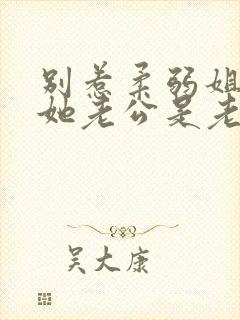 别惹柔弱姐
她老公是老
吴大康